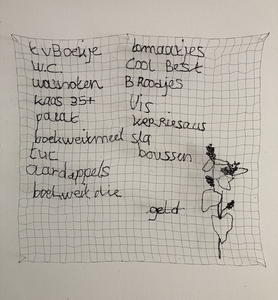 tvBoekje
W.C.
walnoten
kaas 35+
patat
boekweitmeel
tuc
aardappels
boekweit
tomaatjes
Cool Best
BRoodjes
Vis
KERRiesaus
sla
boussen
geld